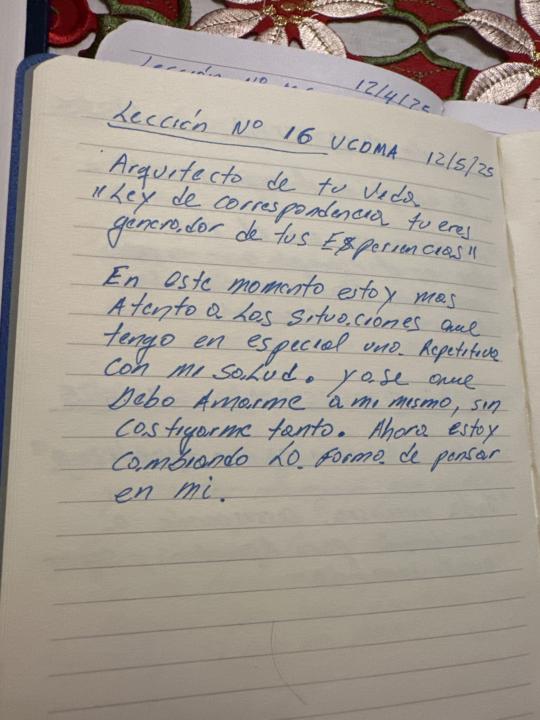 Lección Nº 12/4/25
Lección Nº 16 UCDMA 12/5/25
Arquitecto de tu Vida
"Ley de correspondencia tu eres
generador de tus Experiencias"
En este momento estoy mas
Atento a Los Situaciones que
tengo en especial una Repetitiva
con mi Salud. ya se que
Debo Amarme a mi mismo, sin
Castigarme tanto. Ahora estoy
Cambiando La forma de pensar
en mi.